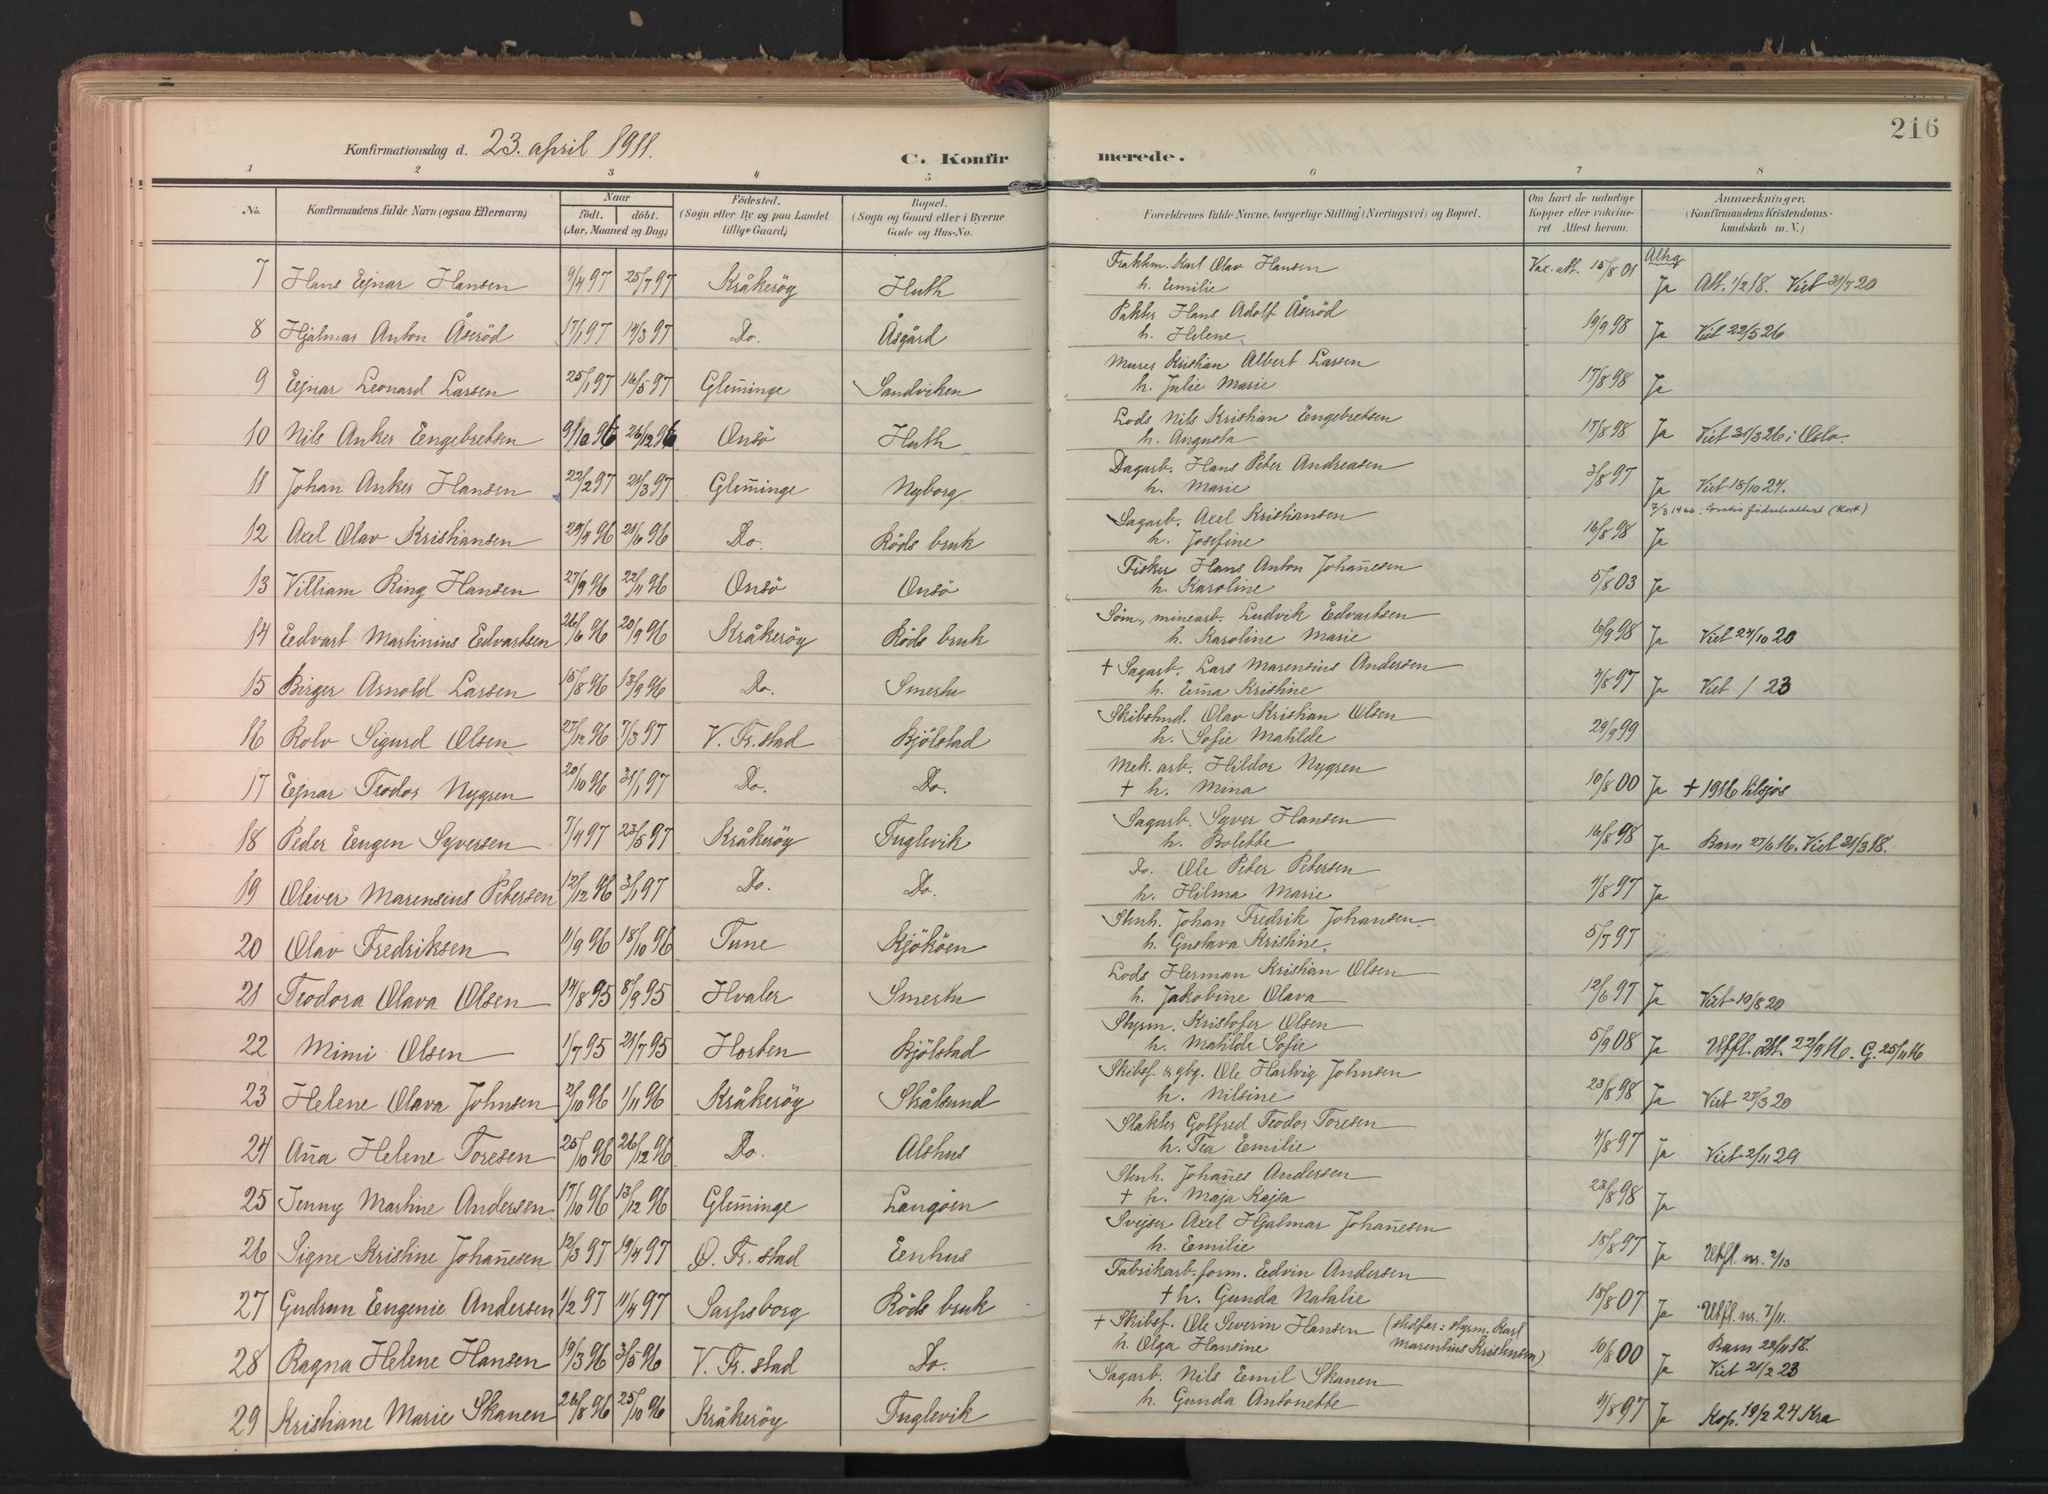 216
Konfirmationsdag d. 23. april 1911.
C. Konfir merede.
1 2 3 4 5 6 7 8
No. Konfirmandens fulde Navn (ogsaa Efternavn) Naar födt. döbt. (Aar, Maaned og Dag) Födested. (Sogn eller By og paa Landet tillige Gaard) Bopæl. (Sogn og Gaard eller i Byerne Gade og Hus-No. Forældrenes fulde Navne, borgerlige Stilling (Næringsvei) og Bopæl. Om havt de naturlige Kopper eller vakcineret Attest herom. Anmærkninger. (Konfirmandens Kristendomskundskab m. V.)
7 Hans Ejnar Hansen 9/4 97 25/7 97 Kråkeröy Huth Frakkm. Karl Olav Hansen h. Emilie Vac. att. 15/8 01 Ja Att. 1/2 18. Viet 31/7 20
8 Hjalmar Anton Åseröd 17/1 97 14/3 97 Do. Åsgård Pakker Hans Adolf Åseröd h. Helene 19/9 98 Ja Viet 22/5 26
9 Ejnar Leonard Larsen 25/1 97 16/5 97 Glem̄inge Sandviken Murer Kristian Albert Larsen h. Julie Marie 17/8 98 Ja
10 Nils Anker Engebretsen 9/10 96 26/12 96 Onsö Huth Lods Nils Kristian Engebretsen h. Augusta 17/8 98 Ja Viet 31/3 26 i Oslo.
11 Johan Anker Hansen 22/2 97 21/3 97 Glem̄inge Nyborg Dagarb. Hans Peter Andreasen h. Marie 3/8 97 Ja Viet 18/10 24.
12 Axel Olav Kristiansen 29/4 96 21/6 96 Do. Röds bruk Sagarb. Axel Kristiansen h. Josefine 16/8 98 Ja
13 Villiam Ring Hansen 27/9 96 22/11 96 Onsö Onsö Fisker Hans Anton Johan̄esen h. Karoline 5/8 03 Ja
14 Edvart Martinius Edvartsen 26/6 96 20/9 96 Kråkeröy Röds bruk Söm., minearb. Ludvik Edvartsen h. Karoline Marie 6/9 98 Ja Viet 27/10 20
15 Birger Arnold Larsen 15/8 96 13/9 96 Do. Smertu † Sagarb. Lars Marensius Andersen h. Em̄a Kristine 4/8 97 Ja Viet / 23
16 Rolv Sigurd Olsen 27/12 96 7/3 97 V. Fr.stad Bjölstad Skibstmd. Olav Kristian Olsen h. Sofie Matilde 29/9 99
17 Ejnar Teodor Nygren 20/10 96 31/1 97 Do. Do. Mek. arb. Hildor Nygren † h. Mina 10/8 00 Ja † 1916 tilsjøs
18 Peder Eugen Syversen 7/4 97 23/5 97 Kråkeröy Fuglevik Sagarb. Syver Hansen h. Bolette 16/8 98 Ja Barn 27/6 16. Viet 31/3 18.
19 Oliver Marensius Petersen 12/12 96 3/1 97 Do. Do. Do. Ole Peter Petersen h. Hilma Marie 4/8 97 Ja
20 Olav Fredriksen 11/9 96 18/10 96 Tune Kjököen Stenh. Johan Fredrik Johansen h. Gustava Kristine 5/7 97
21 Teodora Olava Olsen 14/8 95 8/9 95 Hvaler Smertu Lods Herman Kristian Olsen h. Jakobine Olava 12/6 97 Ja Viet 10/8 20
22 Mimi Olsen 1/7 95 21/7 95 Horten Bjölstad Styrm. Kristofer Olsen h. Matilde Sofie 5/9 08 Ja Utfl. Att. 22/9 16. G. 25/11 16
23 Helene Olava Johnsen 2/10 96 1/11 96 Kråkeröy Skålsund Skibsf. & gbg. Ole Hartvig Johnsen h. Nilsine 23/8 98 Ja Viet 27/3 20
24 An̄a Helene Toresen 25/10 96 26/12 96 Do. Alshus Slakter Gotfred Teodor Toresen h. Tea Emilie 4/8 97 Ja Viet 2/11 29
25 Jenny Martine Andersen 17/10 96 13/12 96 Glem̄inge Langöen Stenh. Johan̄es Andersen † h. Maja Kajsa 23/8 98 Ja
26 Signe Kristine Johan̄esen 12/3 97 19/4 97 Ö. Fr.stad Enhus Svejser Axel Hjalmar Johan̄esen h. Emilie 18/8 97 Ja Utfl. nr. 2/13
27 Gudrun Eugenie Andersen 1/2 97 11/4 97 Sarpsborg Röds bruk Fabrikarb. form. Edvin Andersen † h. Gunda Natalie 18/8 07 Ja Utfl. nr. 7/11.
28 Ragna Helene Hansen 19/3 96 3/5 96 V. Fr.stad Do. † Skibsf. Ole Severin Hansen (stisfar: styrm. Karl Marentius Kristensen) h. Olga Hansine 10/8 00 Ja Barn 22/11 18. Viet 21/2 23
29 Kristiane Marie Skanen 26/8 96 25/10 96 Kråkeröy Fuglevik Sagarb. Nils Emil Skanen h. Gunda Antonette 4/8 97 Ja Kop. 19/2 24 Kra